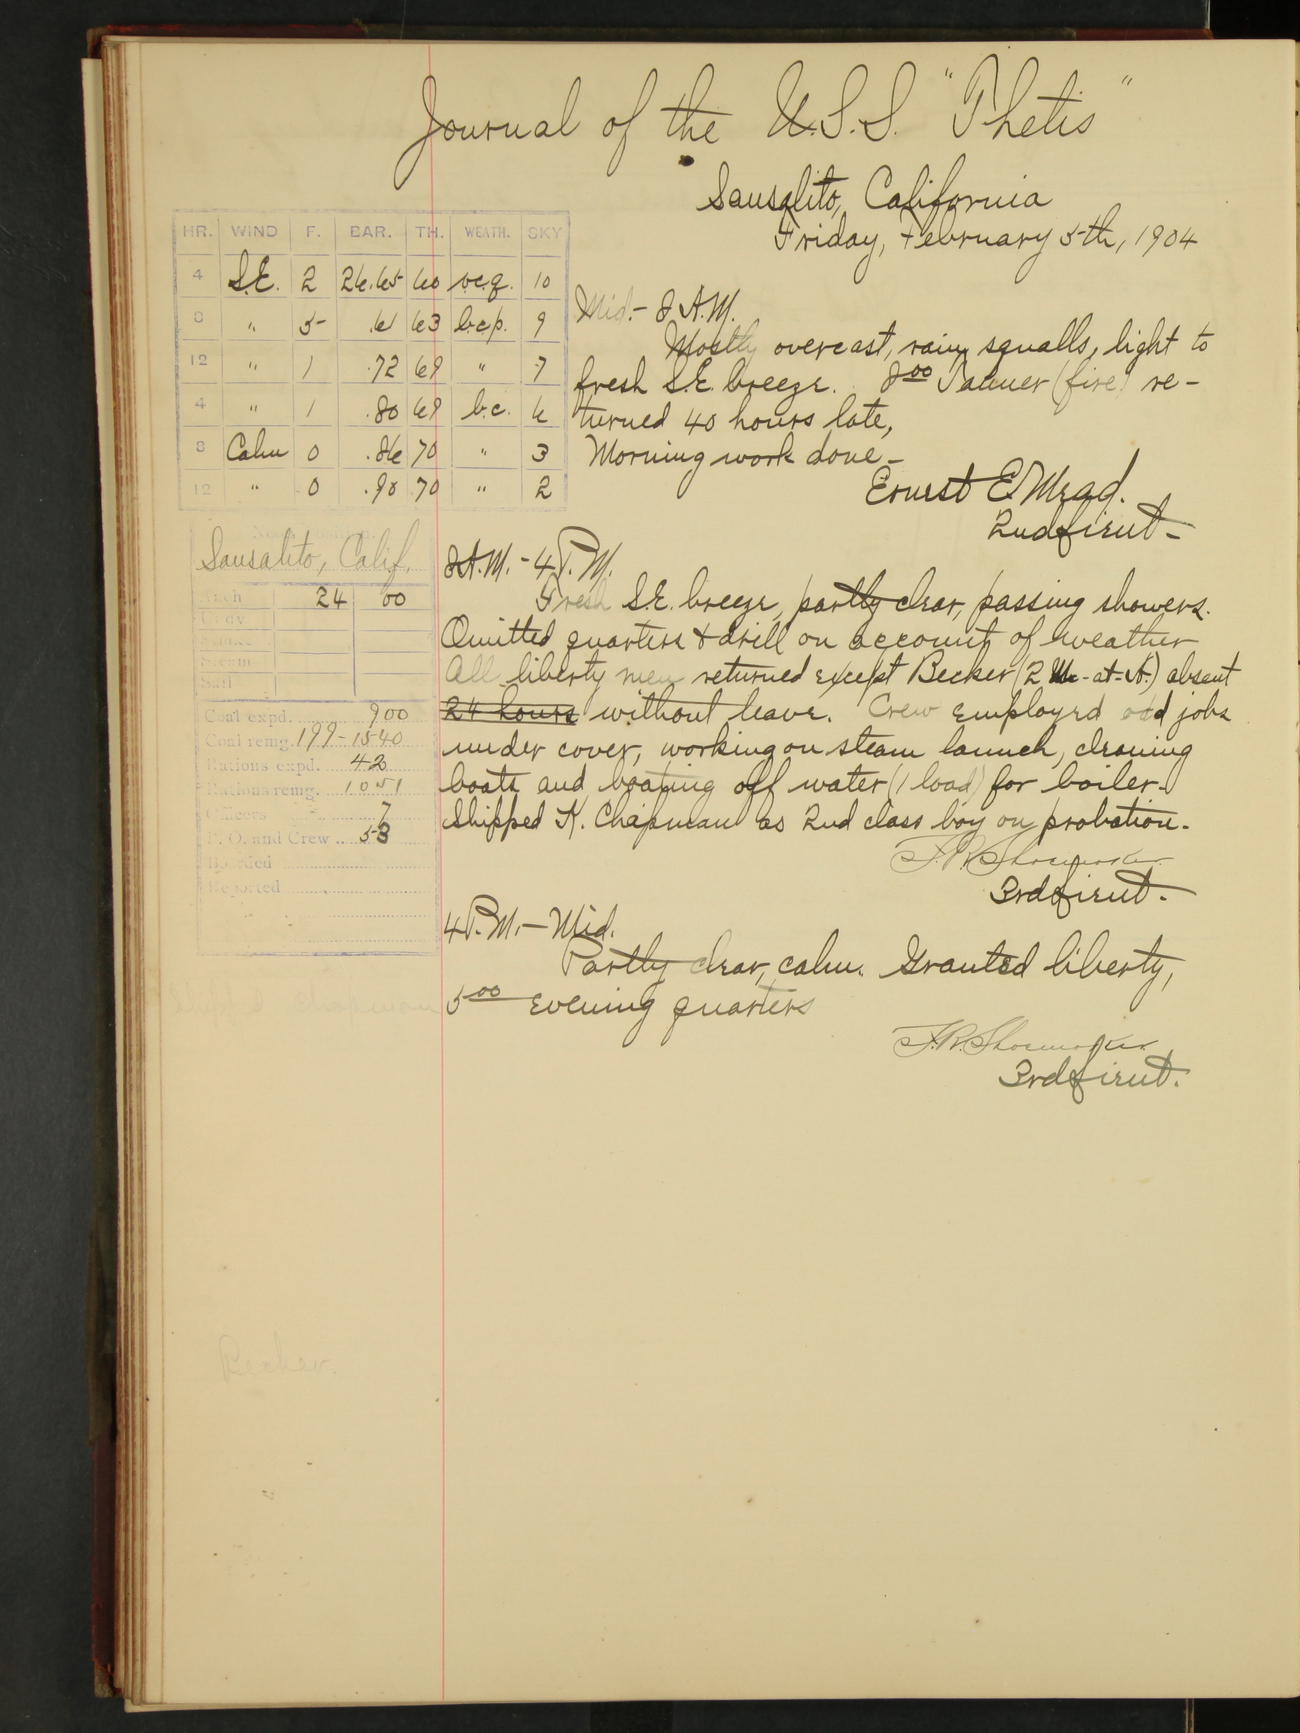 Journal of the U.S.S. "Thetis"
Sausalito, California
Friday, February 5th, 1904
HR. WIND F. BAR. TH. WEATH. SKY
4 S.E. 2 26.65 60 o.c.q. 10
8 " 5 .61 63 b.c.p. 9
12 " 1 .72 69 " 7
4 " 1 .80 69 b.c. 6
8 Calm 0 .86 70 " 3
12 " 0 .90 70 " 2
Mid.- 8 A.M.
Mostly overcast, rain squalls, light to
fresh S.E. breeze. 8 00 (fire) re-
turned 40 hours late,
Morning work done-
Ernest E. Mead.
2nd Lieut-
Sausalito, Calif.
24 00
Steam
Sail
Coal expd. 900
Coal remg. 199-1540
Rations expd. 42
Rations remg. 1051
Officers 7
P. O. and Crew 53
Boarded
Reported
8 A.M.- 4 P.M.
Fresh S.E. breeze, partly clear, passing showers.
Omitted quarters & drill on account of weather
All liberty men returned except Becker (2 M-at-A.) absent
24 hours without leave. Crew employed odd jobs
under cover, working on steam launch, cleaning
boats and boating off water (1 load) for boiler-
Shipped K. Chapman as 2nd class boy on probation.
F.R. Shoemaker
3rd Lieut.
4 P.M.- Mid.
Partly clear, calm. Granted liberty,
5 00 evening quarters
F.R. Shoemaker
3rd Lieut.
Shipped Chapman
Becker.